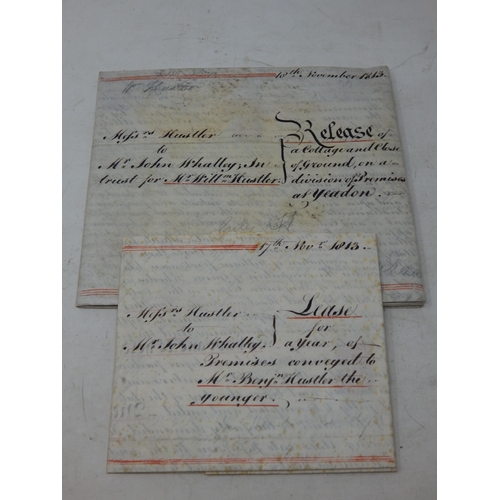 18th November 1813
Messrs Hustler
to
Mr John Whalley; In
trust for Mr Willm Hustler.
Release of
a Cottage and Close
of Ground, on a
division of Premises
at Yeadon.
17th Novr 1813.
Messrs Hustler
to
Mr John Whalley.
Lease
for
a Year, of
Premises conveyed to
Mr Benjn Hustler the
younger.